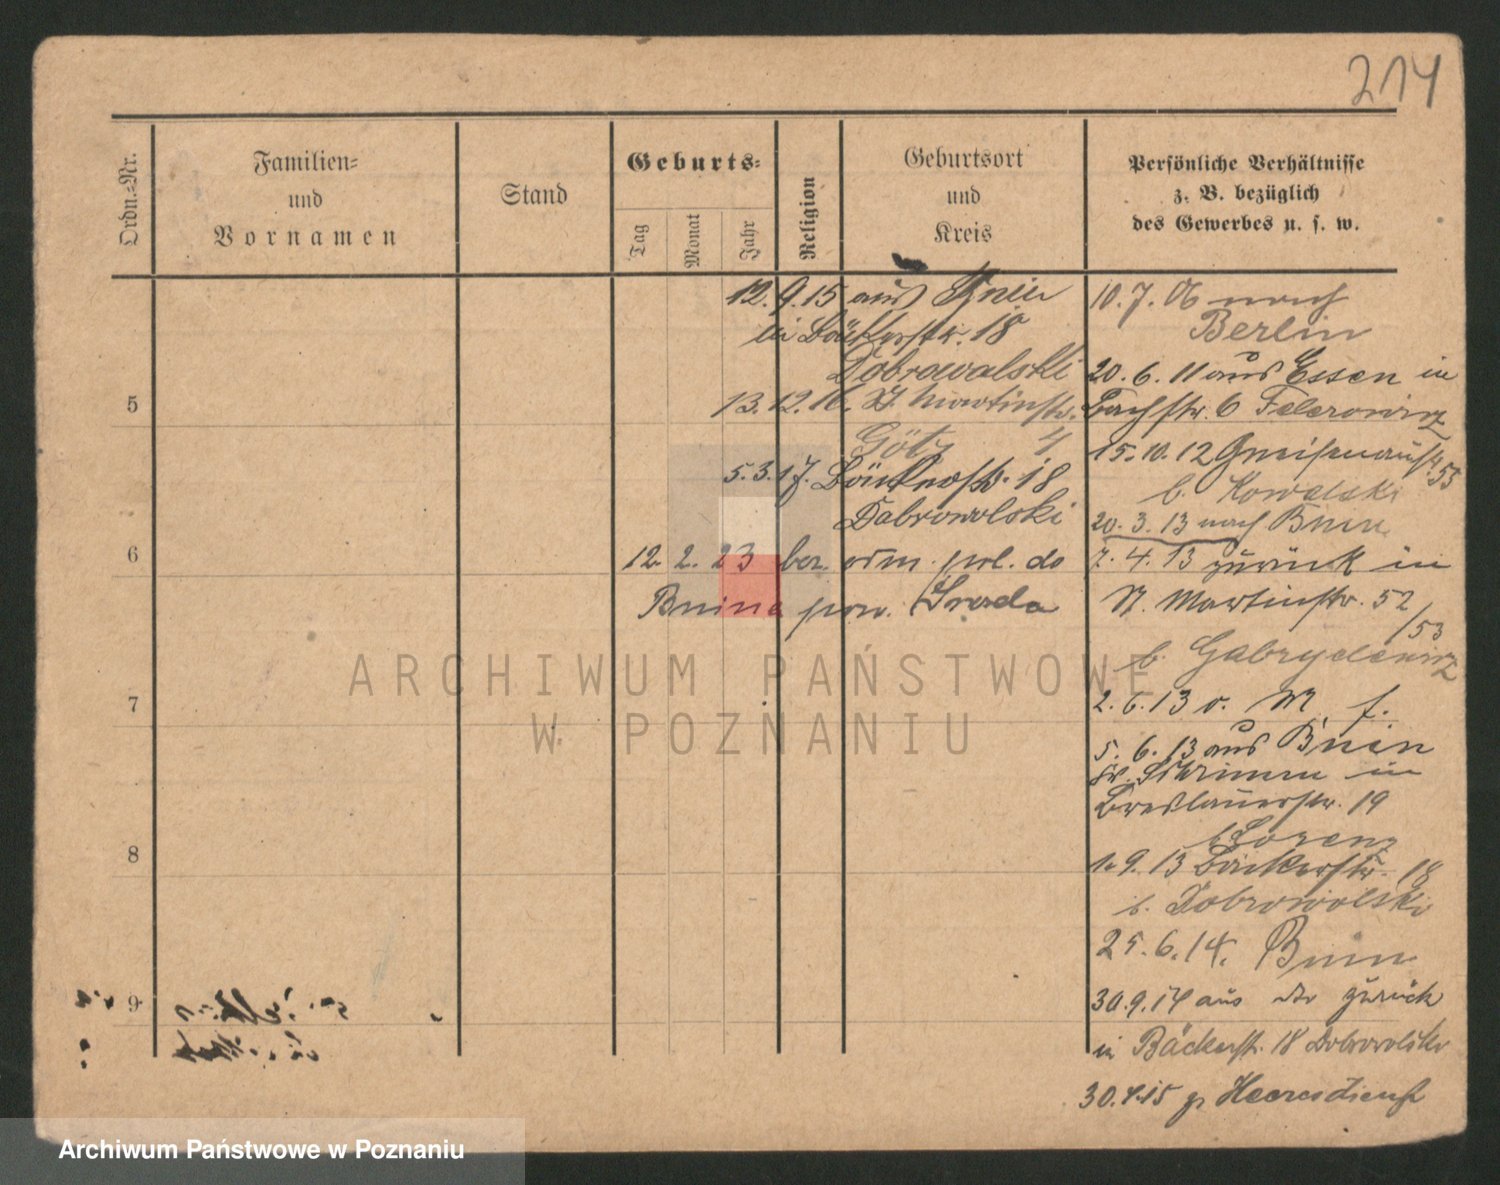 214
Ordn.=Nr.
Familien=
und
Vornamen
Stand
Geburts=
Tag
Monat
Jahr
Religion
Geburtsort
und
Kreis
Persönliche Verhältnisse
z. B. bezüglich
des Gewerbes u. s. w.
5
6
7
8
9
12.9.15 aus Bnin
in Bäckerstr. 18
Dobrowolski
13.12.16. St. Martinstr.
Götz 4
5.3.17. Bäckerstr. 18
Dabrowolski
12. 2. 23 bez. odm. pol. do
Bnina pow. Śrem
10. 7. 06 nach
Berlin
20. 6. 11 aus Essen in
Bachstr. 6
15. 10. 12 Gneisenaustr. 53
b. Kowalski
20. 3. 13 nach Bnin
7. 4. 13 zurück in
St. Martinstr. 52
/53
b.
2. 6. 13 o. M f.
5. 6. 13 aus Bnin
Kr. Schrimm in
Breslauerstr. 19
b Lorenz
1. 9. 13 Bäckerstr. 18
b. Dobrowolski
25. 6. 14. Bnin
30. 9. 14 aus dto zurück
in Bäckerstr. 18 Dobrowolski
30. 4. 15 z. Heeresdienst
ARCHIWUM PAŃSTWOWE
W POZNANIU
Archiwum Państwowe w Poznaniu